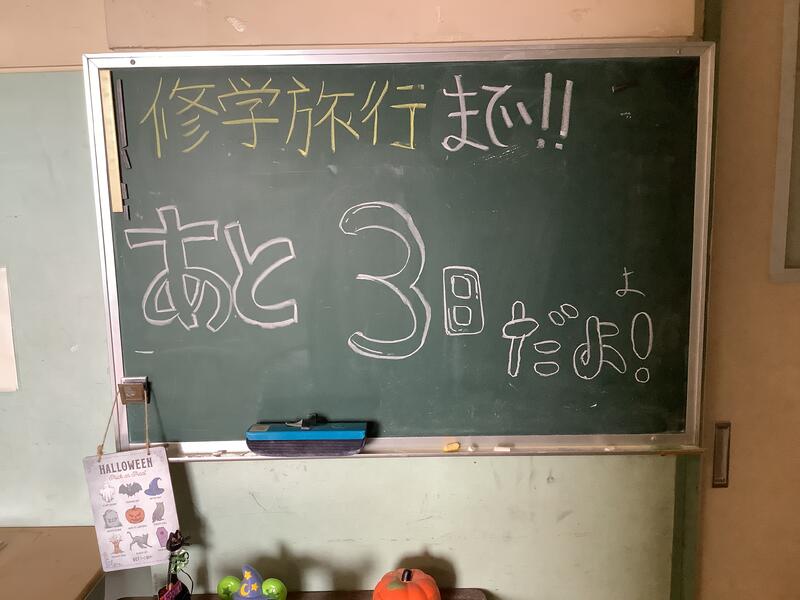 修学旅行まで!!
あと3日だよ!
よ
HALLOWEEN
Trick or Treat